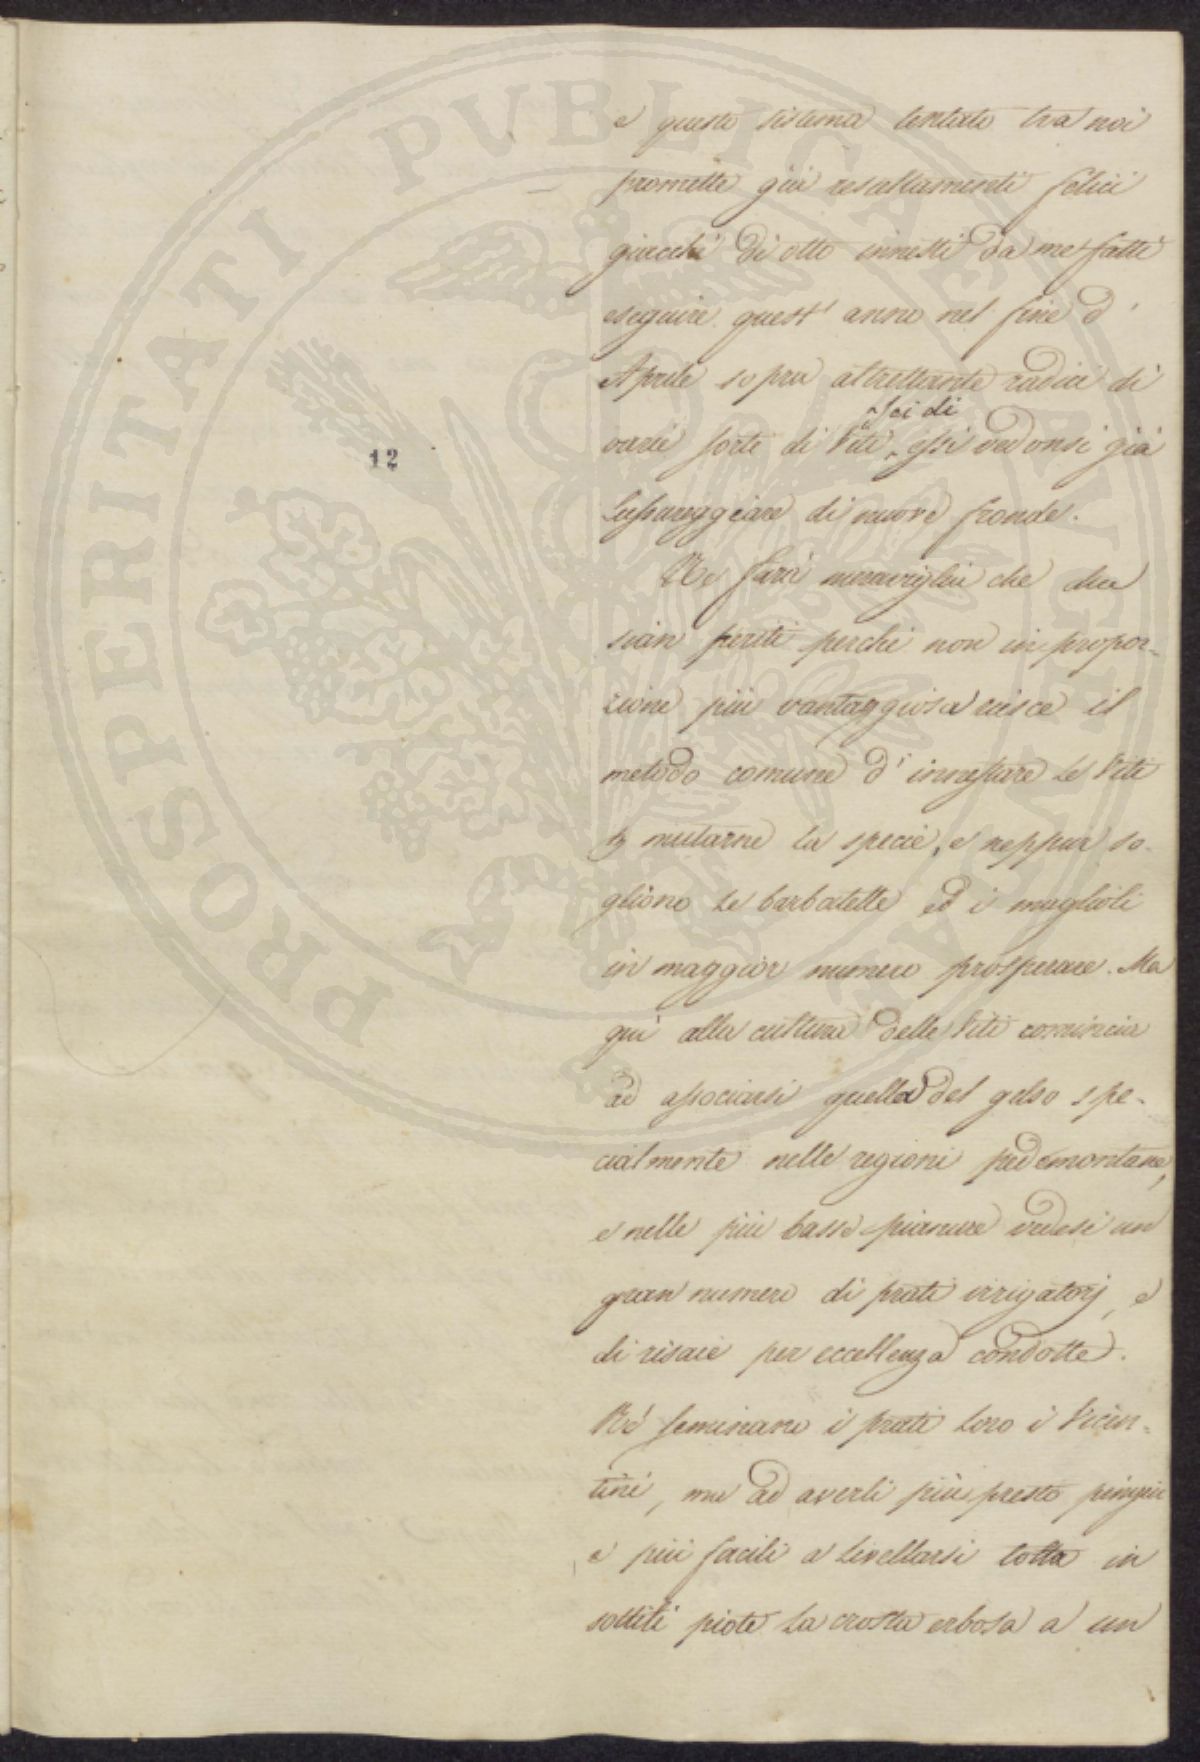 PROSPERITATI PUBLICAE AUGENDAE
12
e questo sistema tentato tra noi
promette già resultamenti felici
giacchè di otto innesti da me fatti
eseguire quest' anno nel fine d'
Aprile sopra altrettante radici di
varie sorte di Viti, sei di essi vedonsi già
lussureggiare di nuove fronde.
Nè farà meraviglia che due
sian periti perchè non in propor-
zione più vantaggiosa riesce il
metodo comune d' innestare le Viti
p mutarne la specie, e neppur so-
gliono le barbatelle ed i maglioli
in maggior numero prosperare. Ma
quì alla cultura delle Viti comincia
ad associarsi quella del gelso spe-
cialmente nelle regioni pedemontane,
e nelle più basse pianure vedesi un
gran numero di prati irrigatorj, e
di risaie per eccellenza condotte.
Nè seminano i prati loro i Vicen-
tini, ma ad averli più presto pingui
e più facili a livellarsi tolta in
sottili piote la crosta erbosa a un